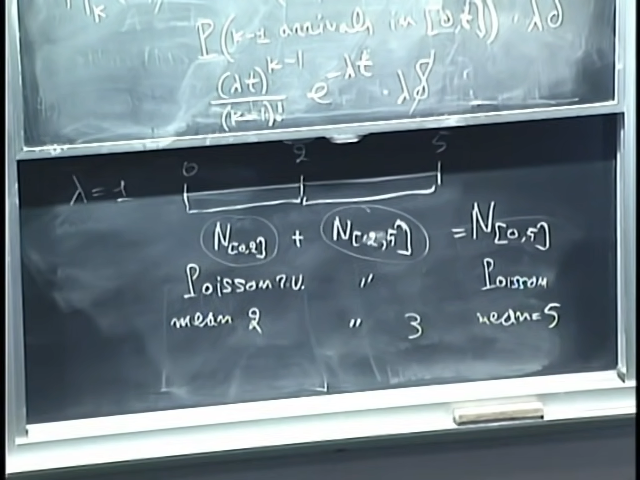 P(k-1 arrivals in [0,t]) · λδ
(λt)^{k-1}/(k-1)! e^{-λt} · λδ
0 2 5
λ = 1
N[0,2] + N[2,5] = N[0,5]
Poisson r.v. " Poisson
mean 2 " 3 mean=5